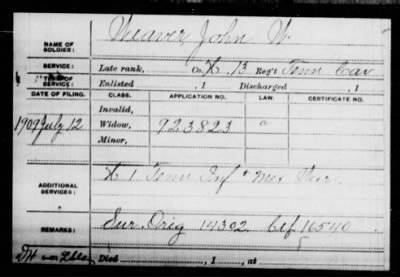 NAME OF SOLDIER: Weaver, John W.
SERVICE: Late rank, Co. K, 13 Reg't Tenn Cav
TERM OF SERVICE: Enlisted , 1 Discharged , 1
DATE OF FILING. CLASS. APPLICATION NO. LAW. CERTIFICATE NO.
Invalid,
1909 July 12 Widow, 923823
Minor,
ADDITIONAL SERVICES: K 1 Tenn Inf Mex War
REMARKS: Sur. Orig 14302 Ctf 16540
Died , 1 , at